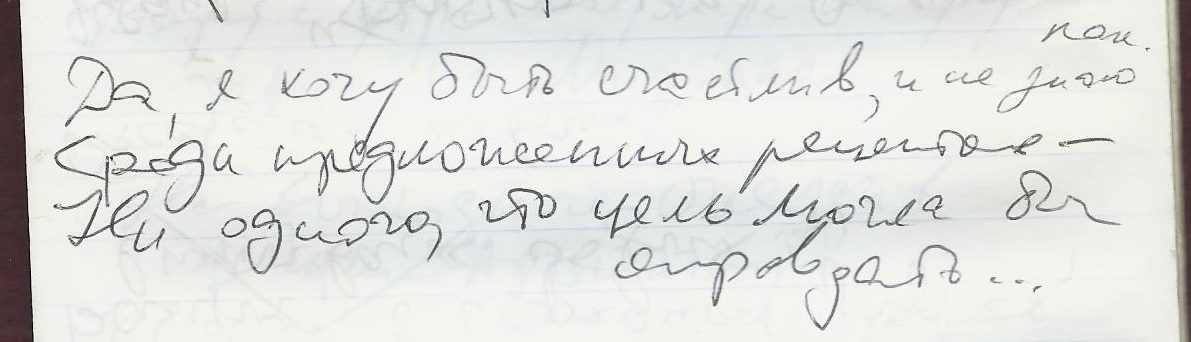 пок.
Да, я хочу быть счастлив, и не знаю
Среди предложенных рецептов —
Ни одного, что цель могла бы
оправдать...